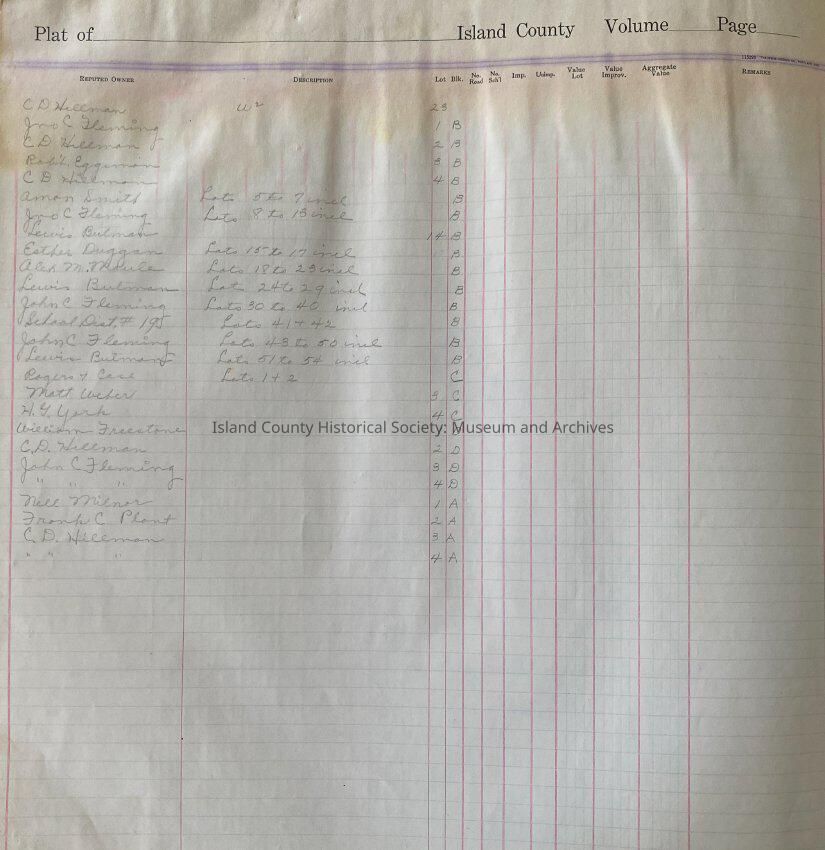 Plat of Island County Volume Page
REPUTED OWNER DESCRIPTION Lot Blk. No. Road No. Sch'l Imp. Unimp. Value Lot Value Improv. Aggregate Value REMARKS
C D Hillman W² 23
Jno C Fleming 1 B
C D Hillman 2 B
Robt. Eggiman 3 B
C D Hillman 4 B
Amon Smith Lots 5 to 7 incl B
Jno C Fleming Lots 8 to 13 incl B
Lewis Butman 14 B
Esther Duggan Lots 15 to 17 incl B
Alex M. Lots 18 to 23 incl B
Lewis Butman Lot 24 to 29 incl B
John C Fleming Lots 30 to 40 incl B
School Dist. # 195 Lots 41 + 42 B
John C Fleming Lots 43 to 50 incl B
Lewis Butman Lots 51 to 54 incl B
Rogers & Case Lots 1 + 2 C
Matt Weber 3 C
H. G. York 4 C
William Freestone
Island County Historical Society: Museum and Archives
C. D. Hillman 2 D
John C Fleming 3 D
" " " 4 D
Nell Milnor 1 A
Frank C Plant 2 A
C. D. Hillman 3 A
" " " 4 A